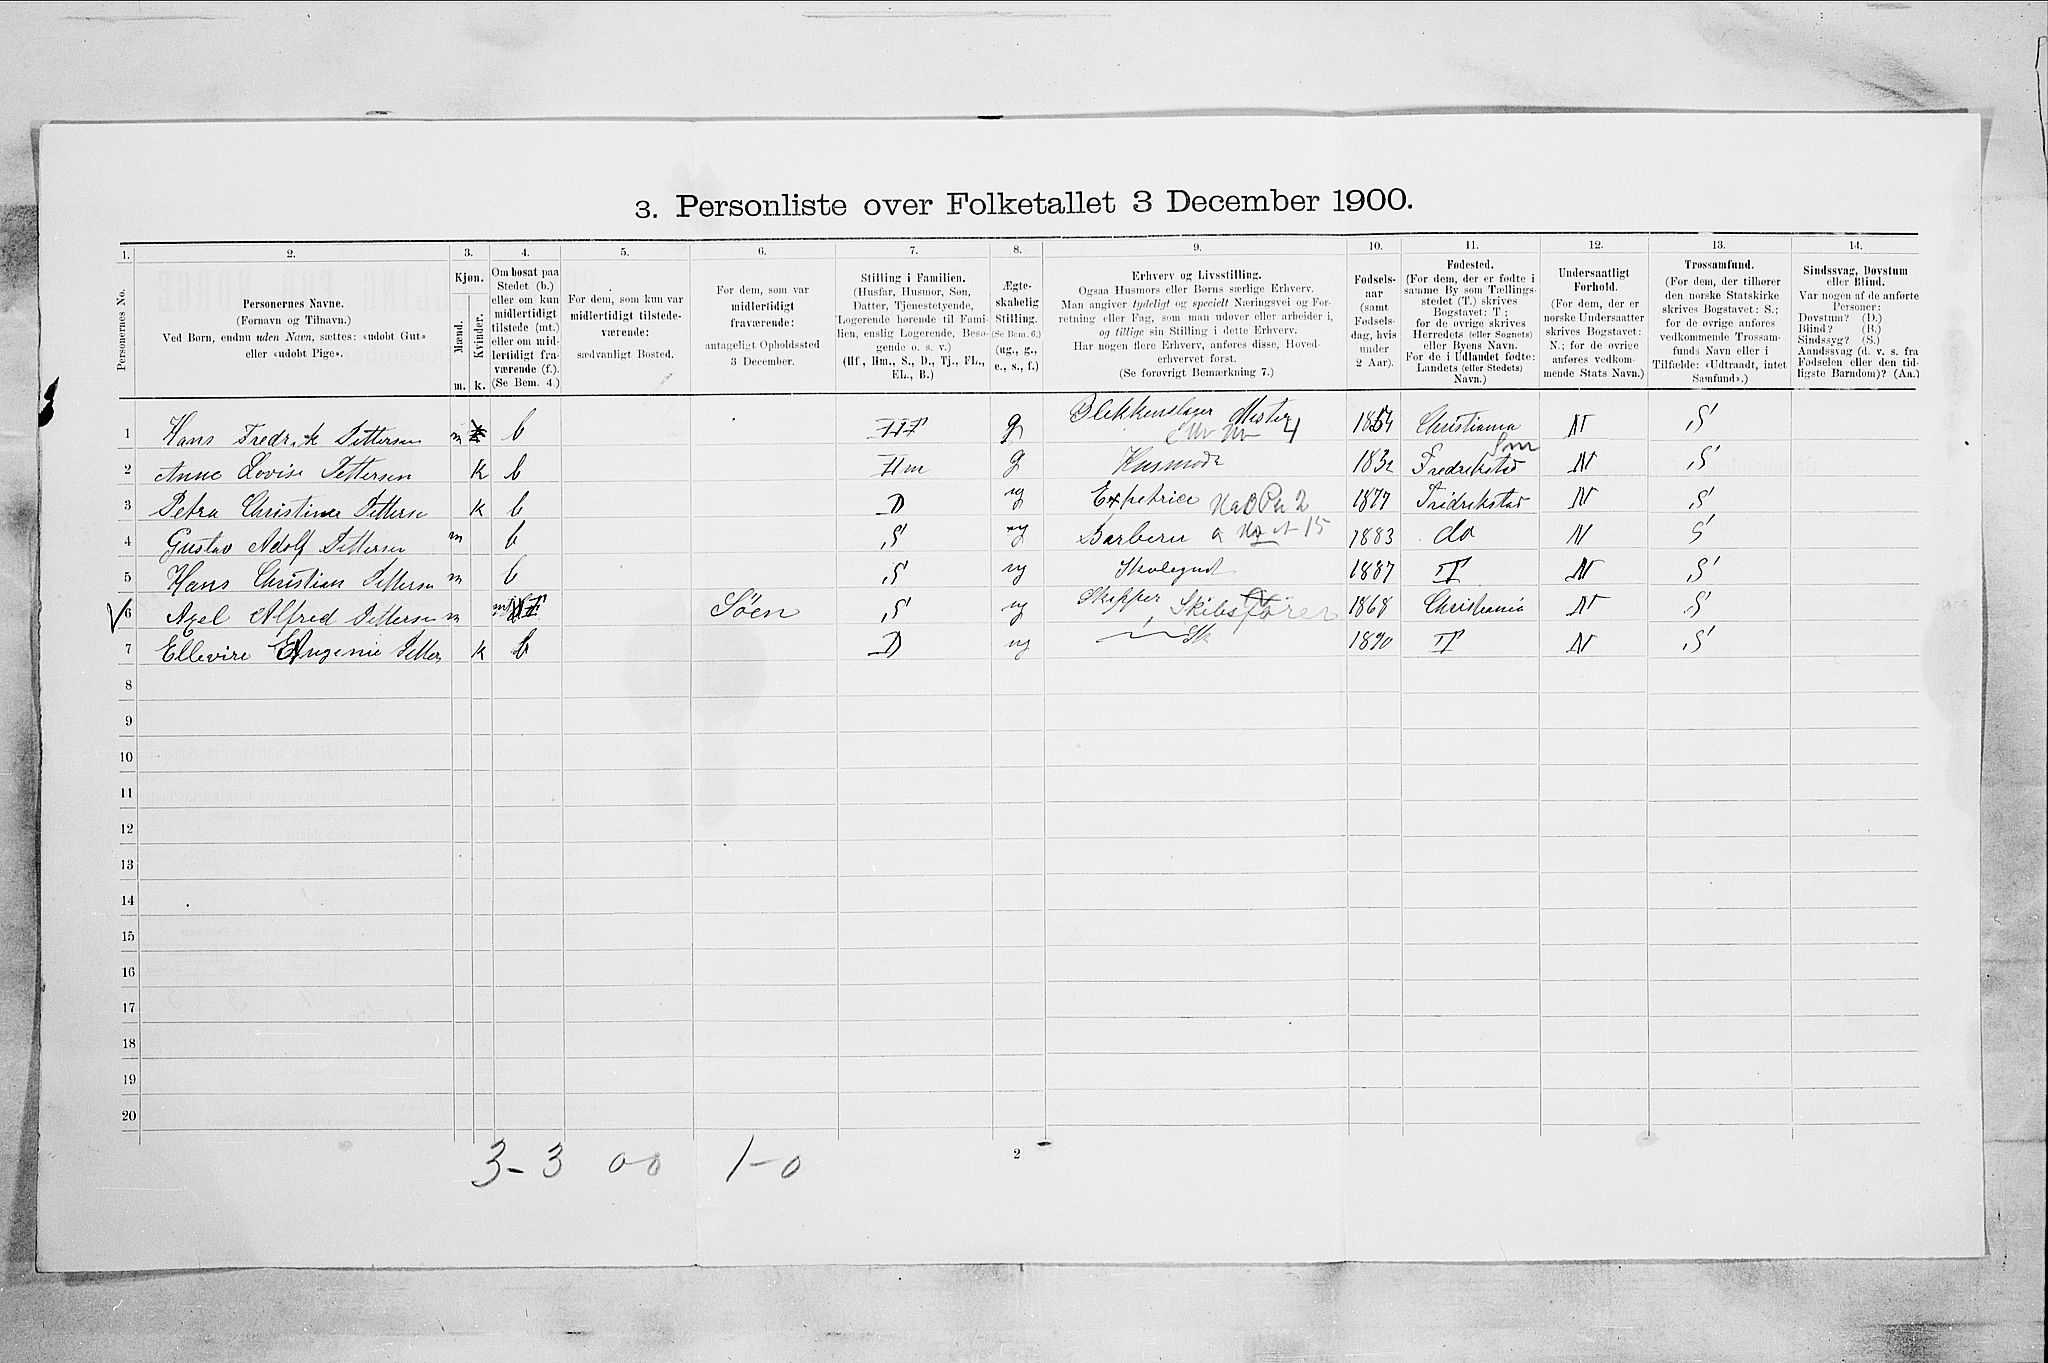 3. Personliste over Folketallet 3 December 1900.
1. 2. 3. 4. 5. 6. 7. 8. 9. 10. 11. 12. 13. 14.
Personernes No.
Personernes Navne.
(Fornavn og Tilnavn.)
Ved Børn, endnu uden Navn, sættes: «udøbt Gut»
eller «udøbt Pige».
Kjøn.
Mænd.
Kvinder.
m. k.
Om bosat paa
Stedet (b.)
eller om kun
midlertidigt
tilstede (mt.)
eller om mid-
lertidigt fra-
værende (f.)
(Se Bem. 4.)
For dem, som kun var
midlertidigt tilstede-
værende:
sædvanligt Bosted.
For dem, som var
midlertidigt
fraværende:
antageligt Opholdssted
3 December.
Stilling i Familien.
(Husfar, Husmor, Søn,
Datter, Tjenestetyende,
Logerende hørende til Fami-
lien, enslig Logerende, Besø-
gende o. s. v.)
(Hf., Hm., S., D., Tj., FL.,
EL., B.)
Ægte-
skabelig
Stilling.
(Se Bem. 6.)
(ug., g.,
e., s., f.)
Erhverv og Livsstilling.
Ogsaa Husmors eller Børns særlige Erhverv.
Man angiver tydeligt og specielt Næringsvei og For-
retning eller Fag, som man udøver eller arbeider i,
og tillige sin Stilling i dette Erhverv.
Har nogen flere Erhverv, anføres disse, Hoved-
erhvervet først.
(Se forøvrigt Bemærkning 7.)
Fødsels-
aar
(samt
Fødsels-
dag, hvis
under
2 Aar).
Fødested.
(For dem, der er fødte i
samme By som Tællings-
stedet (T.) skrives
Bogstavet: T;
for de øvrige skrives
Herredets (eller Sognets)
eller Byens Navn.
For de i Udlandet fødte:
Landets (eller Stedets)
Navn.)
Undersaatligt
Forhold.
(For dem, der er
norske Undersaatter
skrives Bogstavet:
N.; for de øvrige
anføres vedkom-
mende Stats Navn.)
Trossamfund.
(For dem, der tilhører
den norske Statskirke
skrives Bogstavet: S.;
for de øvrige anføres
vedkommende Trossam-
funds Navn eller i
Tilfælde: «Udtraadt, intet
Samfund».)
Sindssvag, Døvstum
eller Blind.
Var nogen af de anførte
Personer:
Døvstum? (D.)
Blind? (B.)
Sindssyg? (S.)
Aandssvag (d. v. s. fra
Fødselen eller den tid-
ligste Barndom)? (Aa.)
1 Hans Fredrik Pettersen m b Hf g Blikkenslager Mester 1854 Christiania N S
2 Anne Lovise Pettersen k b Hm g Husmoder 1832 Fredrikstad N S
3 Petra Christine Petterse k b D ug Expetrice 1877 Fridrikstad N S
4 Gustav Adolf Pettersen m b S ug Barberer 1883 do N S
5 Hans Christian Pettersen m b S ug Skolegut 1887 T N S
6 Axel Alfred Pettersen m f Søen S ug Skipper, Skibsfører 1868 Christiania N S
7 Ellevire Eugenie Petters k b D ug 1890 T N S
8
9
10
11
12
13
14
15
16
17
18
19
20
3-3 0-0 1-0
2